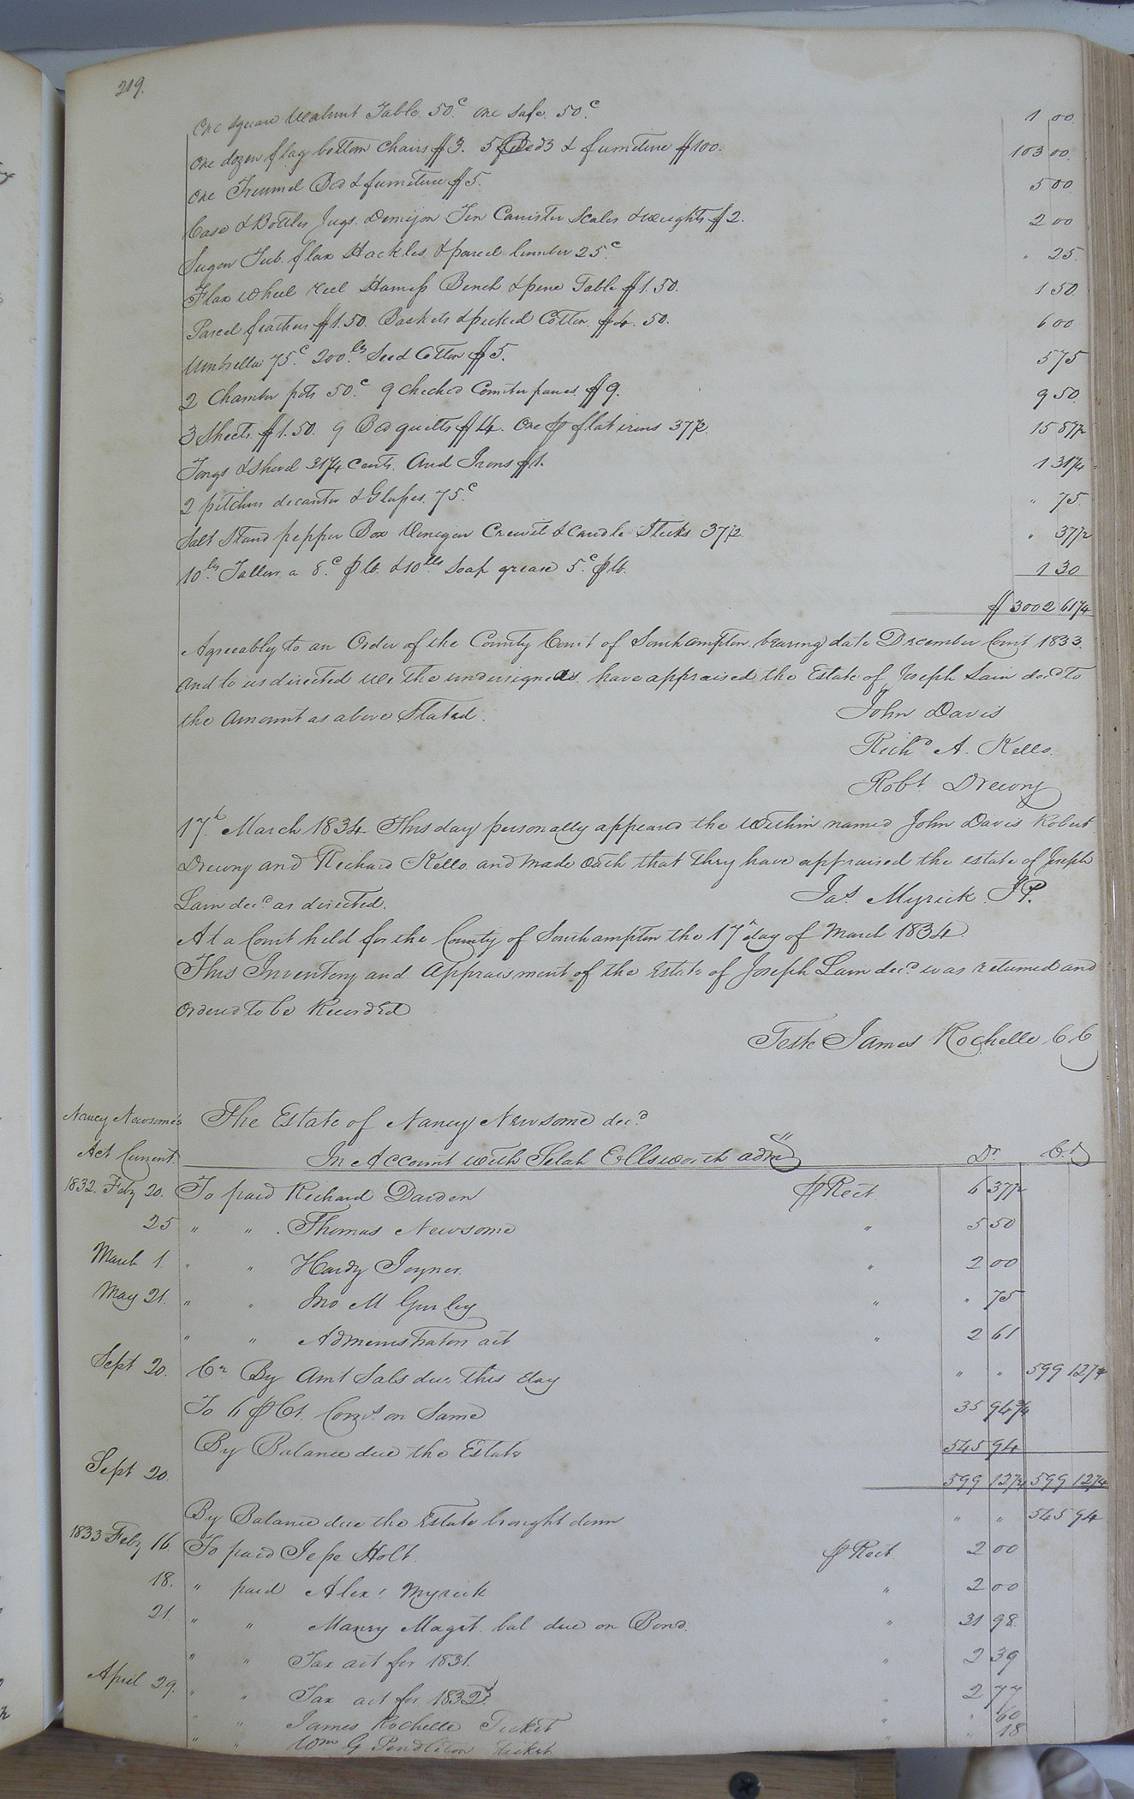 219.
One square Walnut Table. 50c one safe. 50c 1 00
One dozen flag bottom chairs $3. 5 Beds & furniture $100. 103 00.
One Trunnel Bed & furniture $5. 5 00
Case & Bottles Jugs. Demijon Tin Canister Scales & weights $2. 2 00
Sugar Tub. flax Hackles, & parcel lumber 25c. " 25.
Flax wheel reel Harness Bench & pine Table $1.50. 1 50
Parcel feathers $1.50. Baskets & picked Cotton $4.50. 6 00
Umbrella 75c 200 lbs Seed Cotton $5. 5 75
2 Chamber pots 50c. 9 checked Counterpanes $9. 9 50
3 Sheets $1.50. 9 Bed quilts $14. One p flat irons 37½ 15 87½
Tongs & shovel 31¼ cents. And Irons $1. 1 31¼
2 pitchers decanter & Glasses. 75c " 75.
Salt Stand pepper Box Vinegar Crewit & Candle Sticks 37½ " 37½
10 lbs Tallow a 8c p lb. & 10 lbs soap grease 5c p lb. 1 30
$ 3002 61¼
Agreeably to an Order of the County Court of Southampton bearing date December Court 1833.
and to us directed We The undersigned have appraised the Estate of Joseph Lain decd To
the Amount as above Stated.
John Davis
Richd A. Kello.
Robt Drewry
17th March 1834 This day personally appeared the Within named John Davis Robert
Drewry and Richard Kello and made Oath that They have appraised the estate of Joseph
Lain decd as directed.
Jas. Myrick J.P.
At a Court held for the County of Southampton the 17th day of March 1834
This Inventory and Appraisment of the Estate of Joseph Lain decd was returned and
Ordered to be Recorded
Teste James Rochelle C C
Nancy Newsome's The Estate of Nancy Newsome decd
Act Current. In Account with Selah Ellsworth admr Dr. Cr.
1832. Feby 20. To paid Richard Darden p Rect 6 37½
25 " " Thomas Newsome " 5 50
March 1. " " Hardy Joyner. " 2 00
May 21. " " Jno M Gurley " " 75
" " Administrators act " 2 61
Sept 20. Cr By Amt Sales due This day " " 599 12¼
To 6 p Ct. Coms. on Same 35 94¾
By Balance due the Estate 545 94
Sept 20. 599 12¼ 599 12¼
By Balance due the Estate brought down " " 545 94
1833 Feby 16. To paid Jesse Holt p Rect 2 00
18. " paid Alexr Myrick " 2 00
21. " " Maury Magt. bal due on Bond. " 31 98
" " Tax act for 1831. " 2 39
April 29. " " Tax act for 1832. " 2 77
" " James Rochelle Ticket " " 60
" " Wm G Pendleton ticket " 18